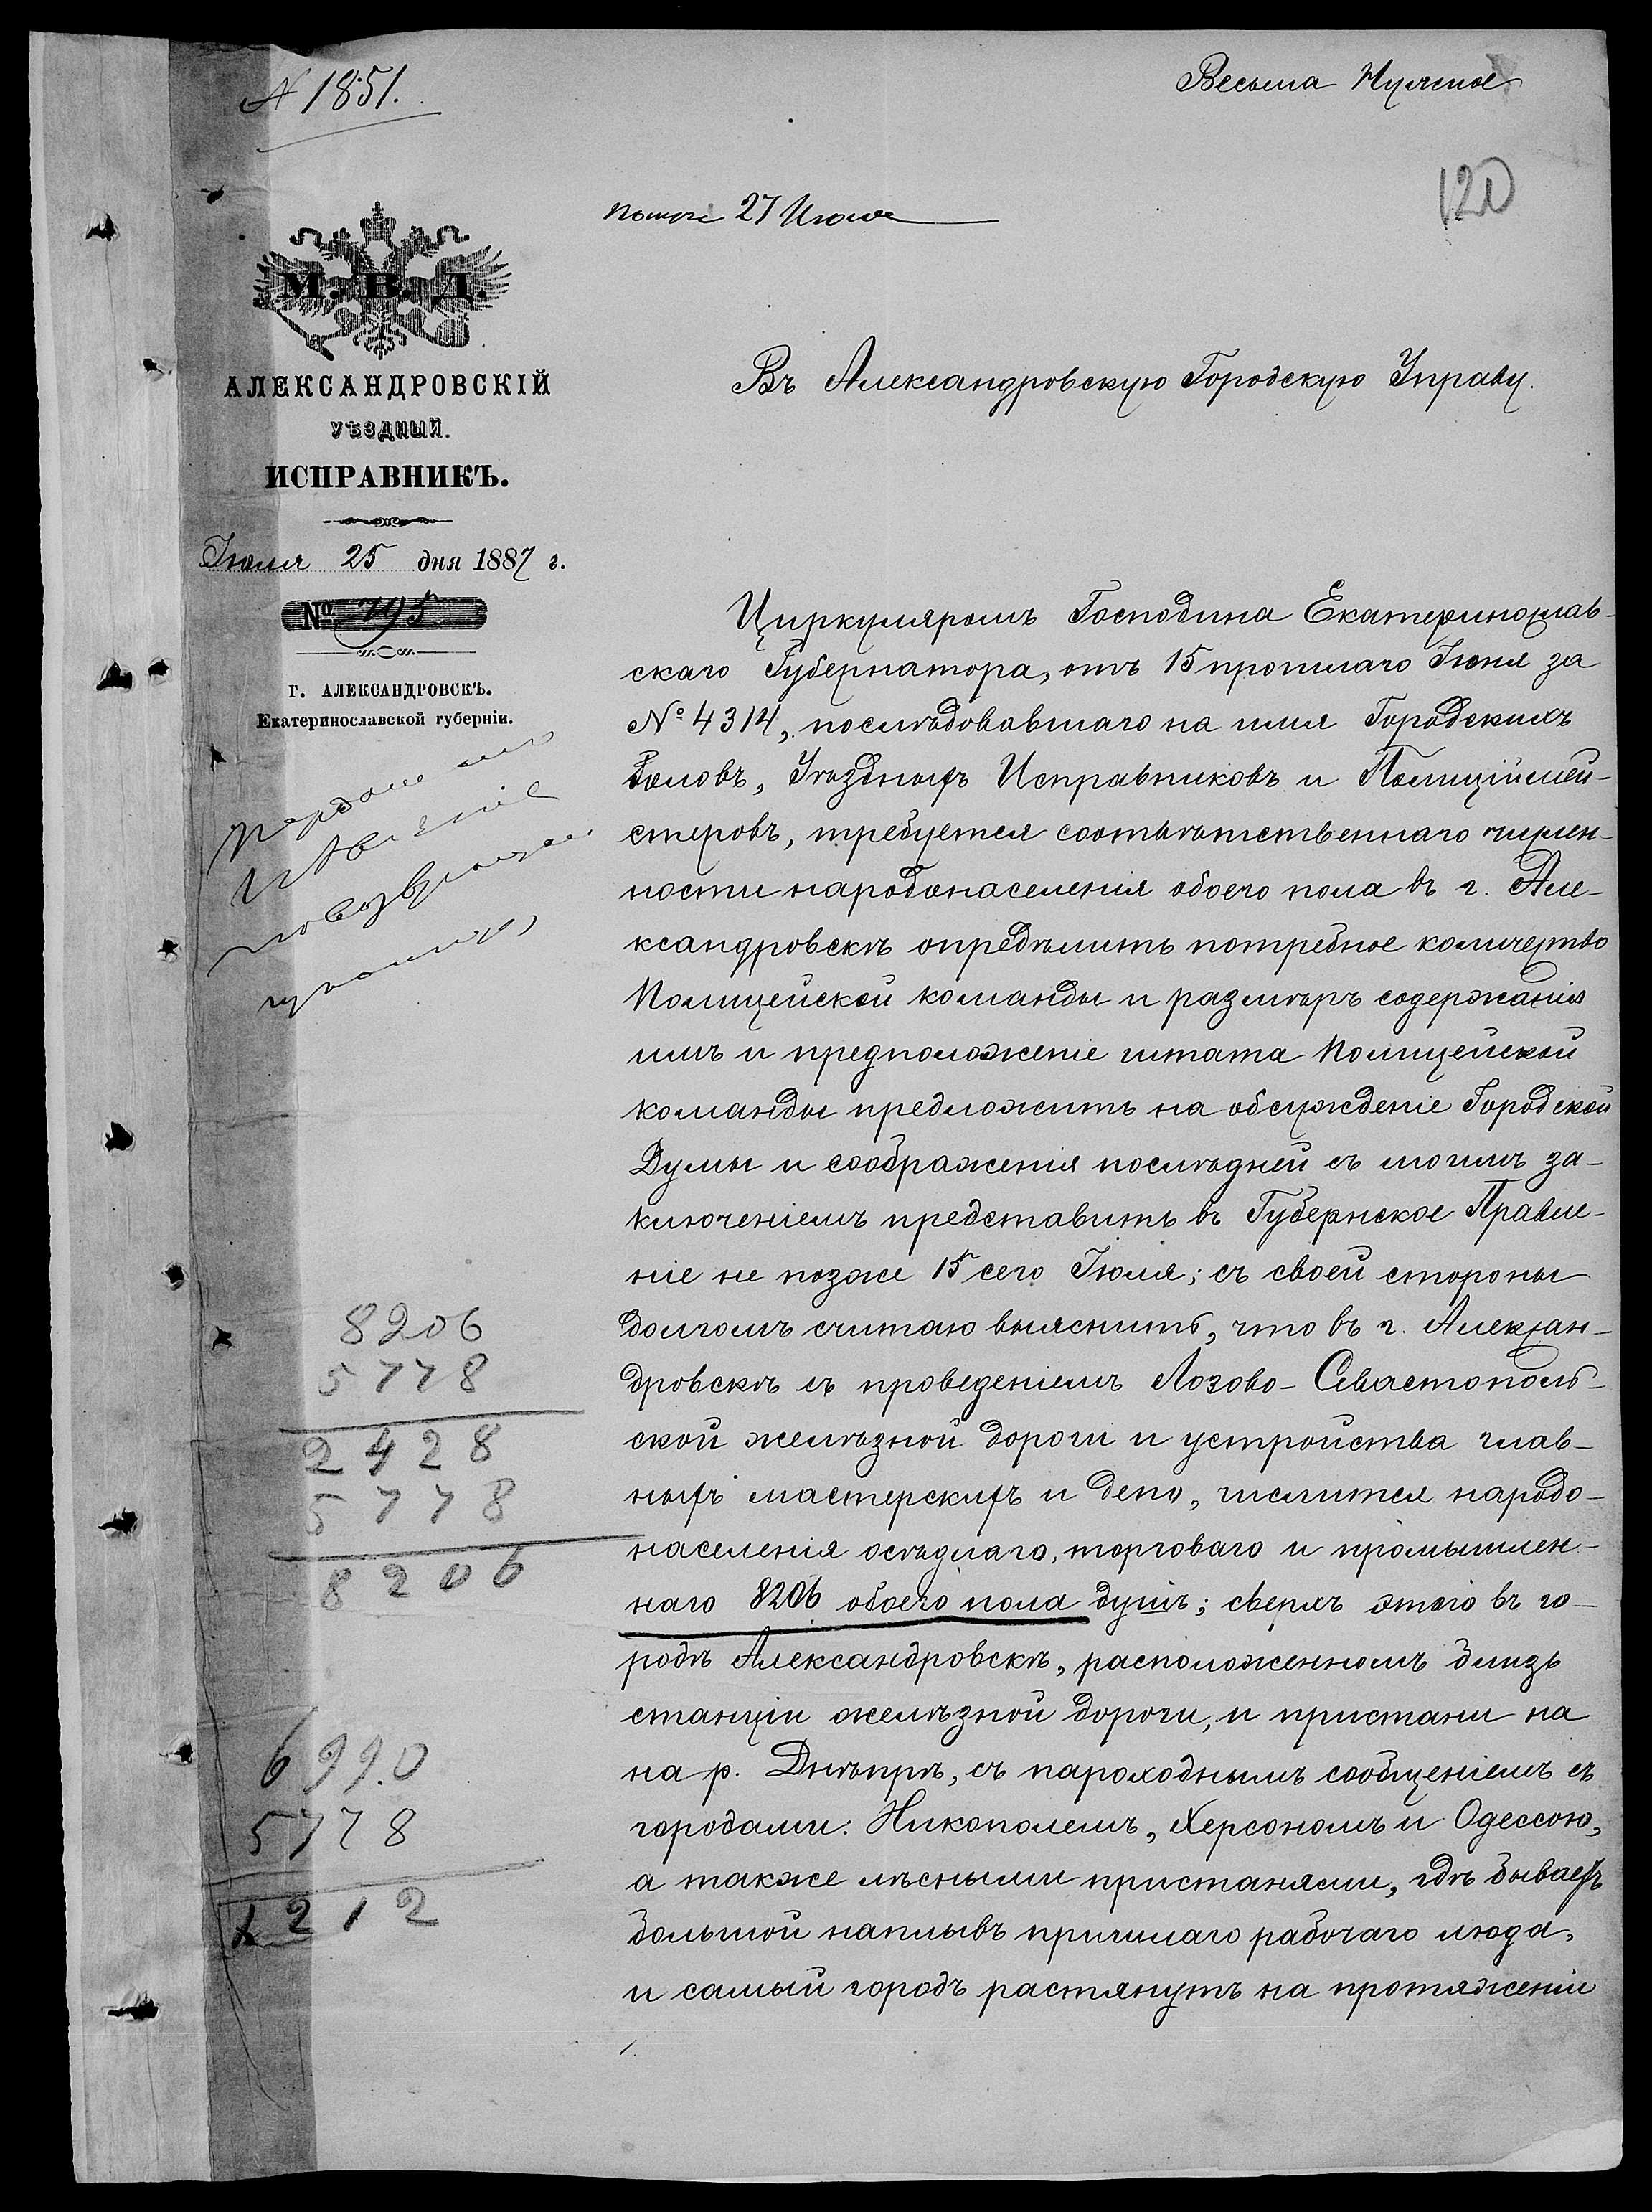 № 1851.
Весьма Нужное
120
получ 27 Июля
М. В. Д.
АЛЕКСАНДРОВСКІЙ
УѢЗДНЫЙ.
ИСПРАВНИКЪ.
Іюля 25 дня 1887 г.
№ 795
Г. АЛЕКСАНДРОВСКЪ.
Екатеринославской губерніи.
8206
5778
2428
5778
8206
6990
5778
1212
Въ Александровскую Городскую Управу.
Циркуляромъ Господина Екатеринослав-
скаго Губернатора, отъ 15 прошлаго Іюня за
№ 4314, послѣдовавшаго на имя Городскихъ
Головъ, Уѣздныхъ Исправниковъ и Полиціймей-
стеровъ, требуется соотвѣтственнаго числен-
ности народонаселенія обоего пола въ г. Але-
ксандровскѣ опредѣлить потребное количество
Полицейской команды и размѣръ содержанія
имъ и предположеніе штата Полицейской
команды предложить на обсужденіе Городской
Думы и соображенія послѣдней съ моимъ за-
ключеніемъ представить въ Губернское Правле-
ніе не позже 15 сего Іюля; съ своей стороны
долгомъ считаю выяснить, что въ г. Алексан-
дровскѣ съ проведеніемъ Лозово-Севастополь-
ской желѣзной дороги и устройства глав-
ныхъ мастерскихъ и депо, числится народо-
населенія осѣдлаго, торговаго и промышлен-
наго 8206 обоего пола душъ; сверхъ этого въ го-
родѣ Александровскѣ, расположенномъ близь
станціи желѣзной дороги, и пристани на
на р. Днѣпрѣ, съ пароходнымъ сообщеніемъ съ
городами: Никополемъ, Херсономъ и Одессою,
а также лѣсными пристанями, гдѣ бываетъ
большой наплывъ пришлаго рабочаго люда,
и самый городъ растянутъ на протяженіи